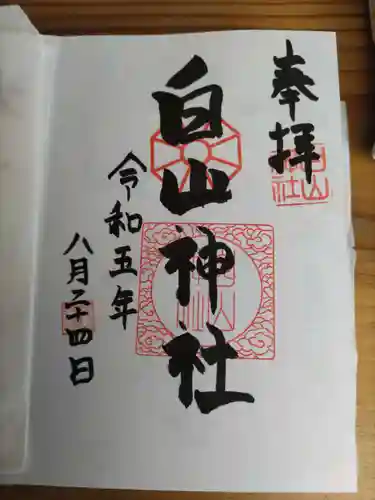 奉拝
白山神社
令和五年
八月二十四日